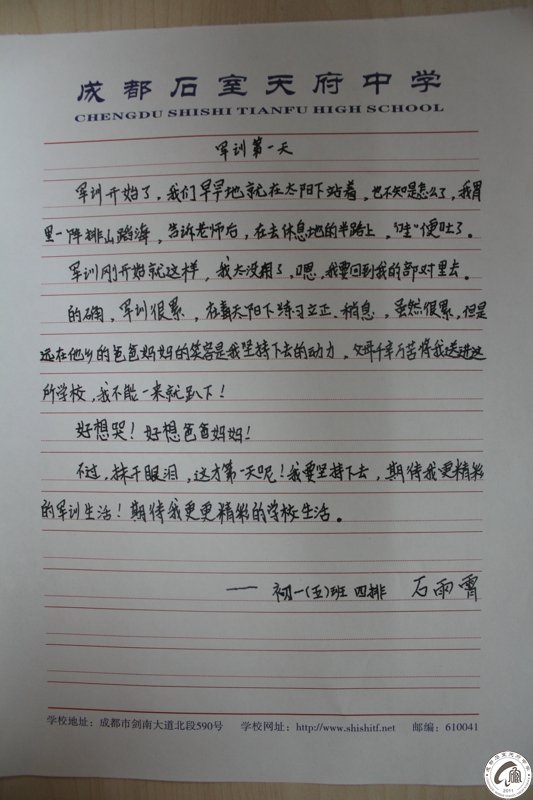 成都石室天府中学
CHENGDU SHISHI TIANFU HIGH SCHOOL
军训第一天
军训开始了，我们早早地就在太阳下站着，也不知是怎么了，我胃
里一阵排山蹈海，告诉老师后，在去休息地的半路上，“哇”便吐了。
军训刚开始就这样，我太没用了，嗯，我要回到我的部对里去。
的确，军训很累，在着太阳下练习立正、稍息，虽然很累，但是
远在他乡的爸爸妈妈的笑容是我坚持下去的动力，父母千辛万苦将我送进这
所学校，我不能一来就趴下！
好想哭！好想爸爸妈妈！
不过，抹干眼泪，这才第一天呢！我要坚持下去，期待我更精彩
的军训生活！期待我更更精彩的学校生活。
—— 初一(五)班 四排 石雨霄
学校地址：成都市剑南大道北段590号 学校网址：http://www.shishitf.net 邮编：610041
2011